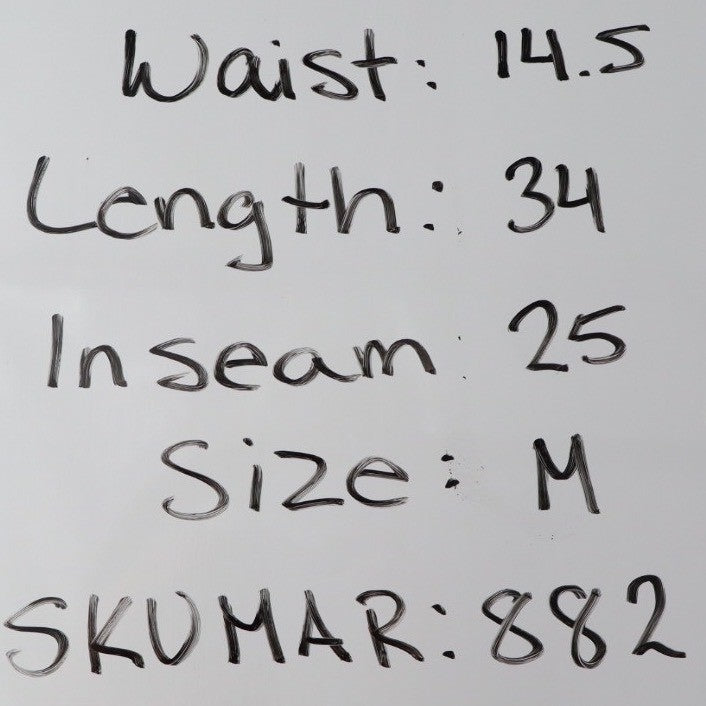 Waist: 14.5
Length: 34
Inseam: 25
Size: M
SKUMAR: 882